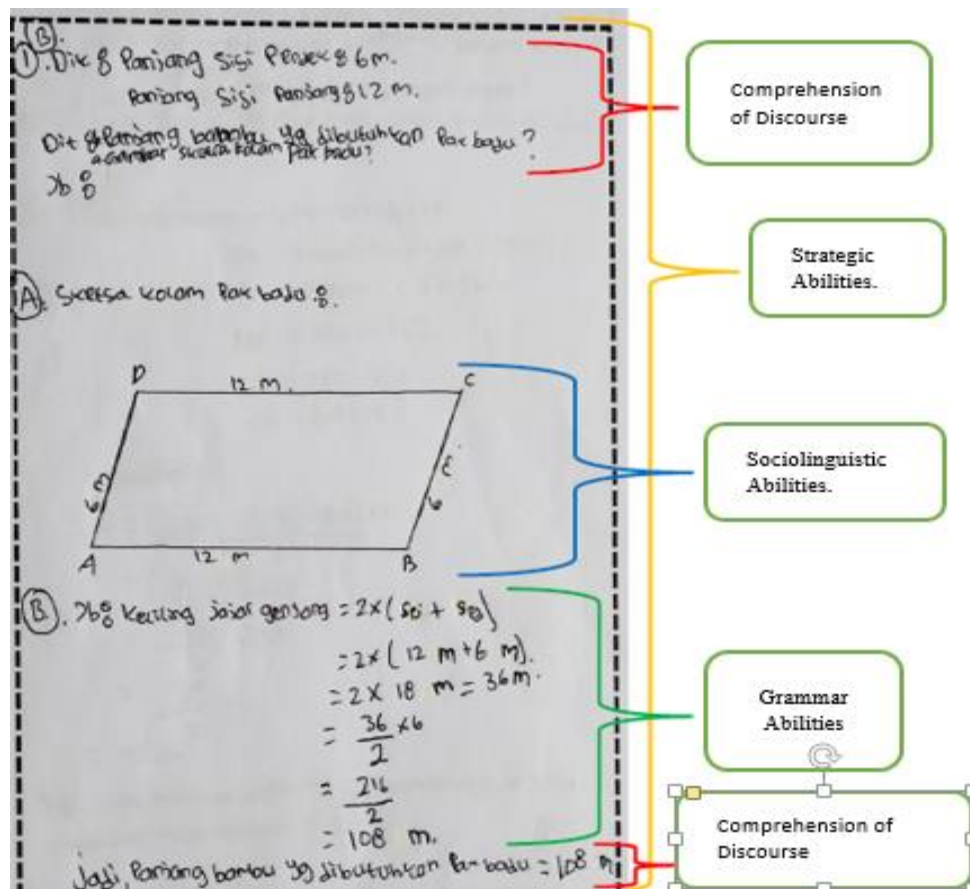 B.
1. Dik : Panjang sisi Pendek : 6 m.
Panjang sisi Panjang : 12 m.
Dit : Panjang bambu yg dibutuhkan Pak badu ?
a Gambar sketsa kolam Pak badu?
Jb :
A. Sketsa kolam Pak badu :.
D 12 m. C
6 m 6 m
A 12 m B
B. Jb : Keliling jajar genjang = 2x(
= 2x ( 12 m + 6 m).
= 2 x 18 m = 36 m.
= 36/2 x 6
= 216/2
= 108 m.
Jadi, Panjang bambu yg dibutuhkan Pak badu = 108 m
Comprehension
of Discourse
Strategic
Abilities.
Sociolinguistic
Abilities.
Grammar
Abilities
Comprehension of
Discourse